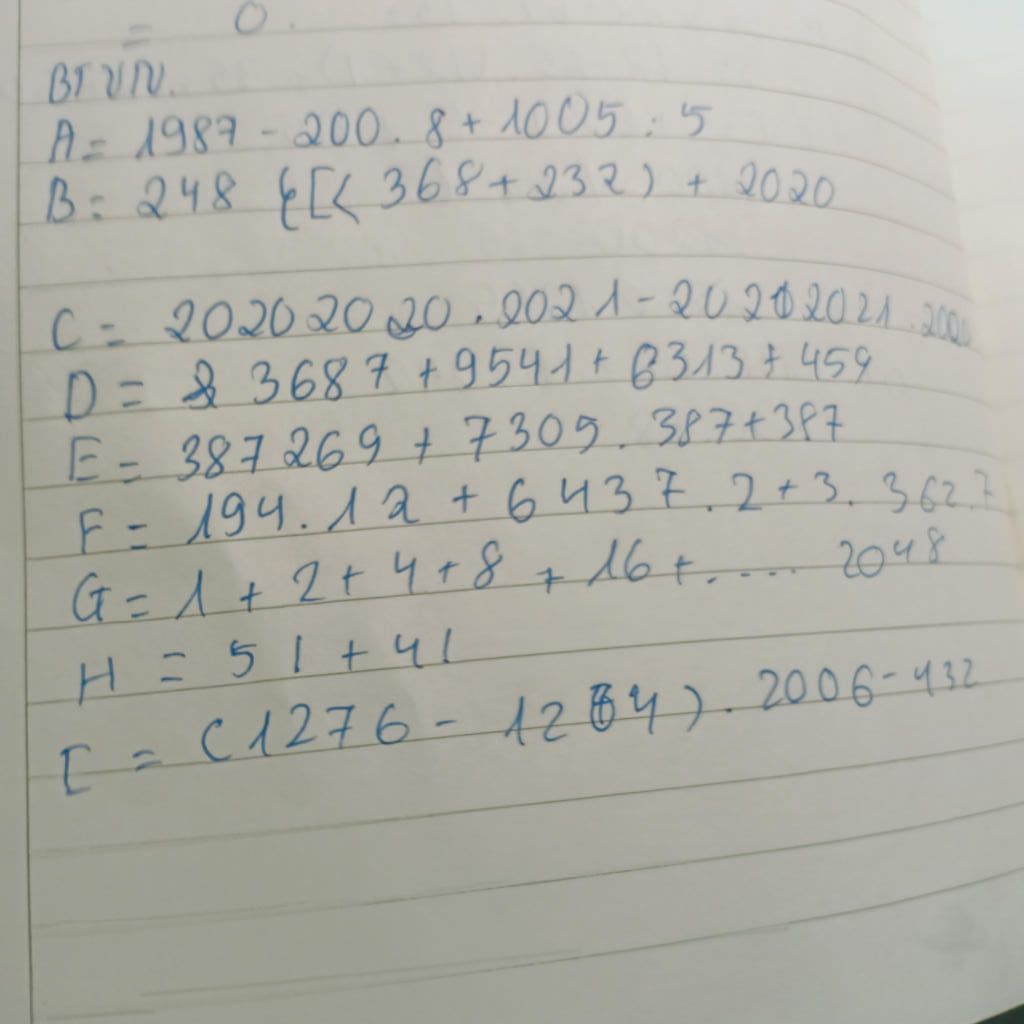 = 0.
BTVN.
A = 1987 - 200 . 8 + 1005 : 5
B = 248 {[( 368 + 232) + 2020
C = 20202020 . 2021 - 20212021 .
D = 3687 + 9541 + 6313 + 459
E = 387269 + 7309 . 387 + 387
F = 194 . 12 + 6437 . 2 + 3 . 362 . 7
G = 1 + 2 + 4 + 8 + 16 + .... 2048
H = 5! + 4!
I = (1276 - 1264) . 2006 - 432